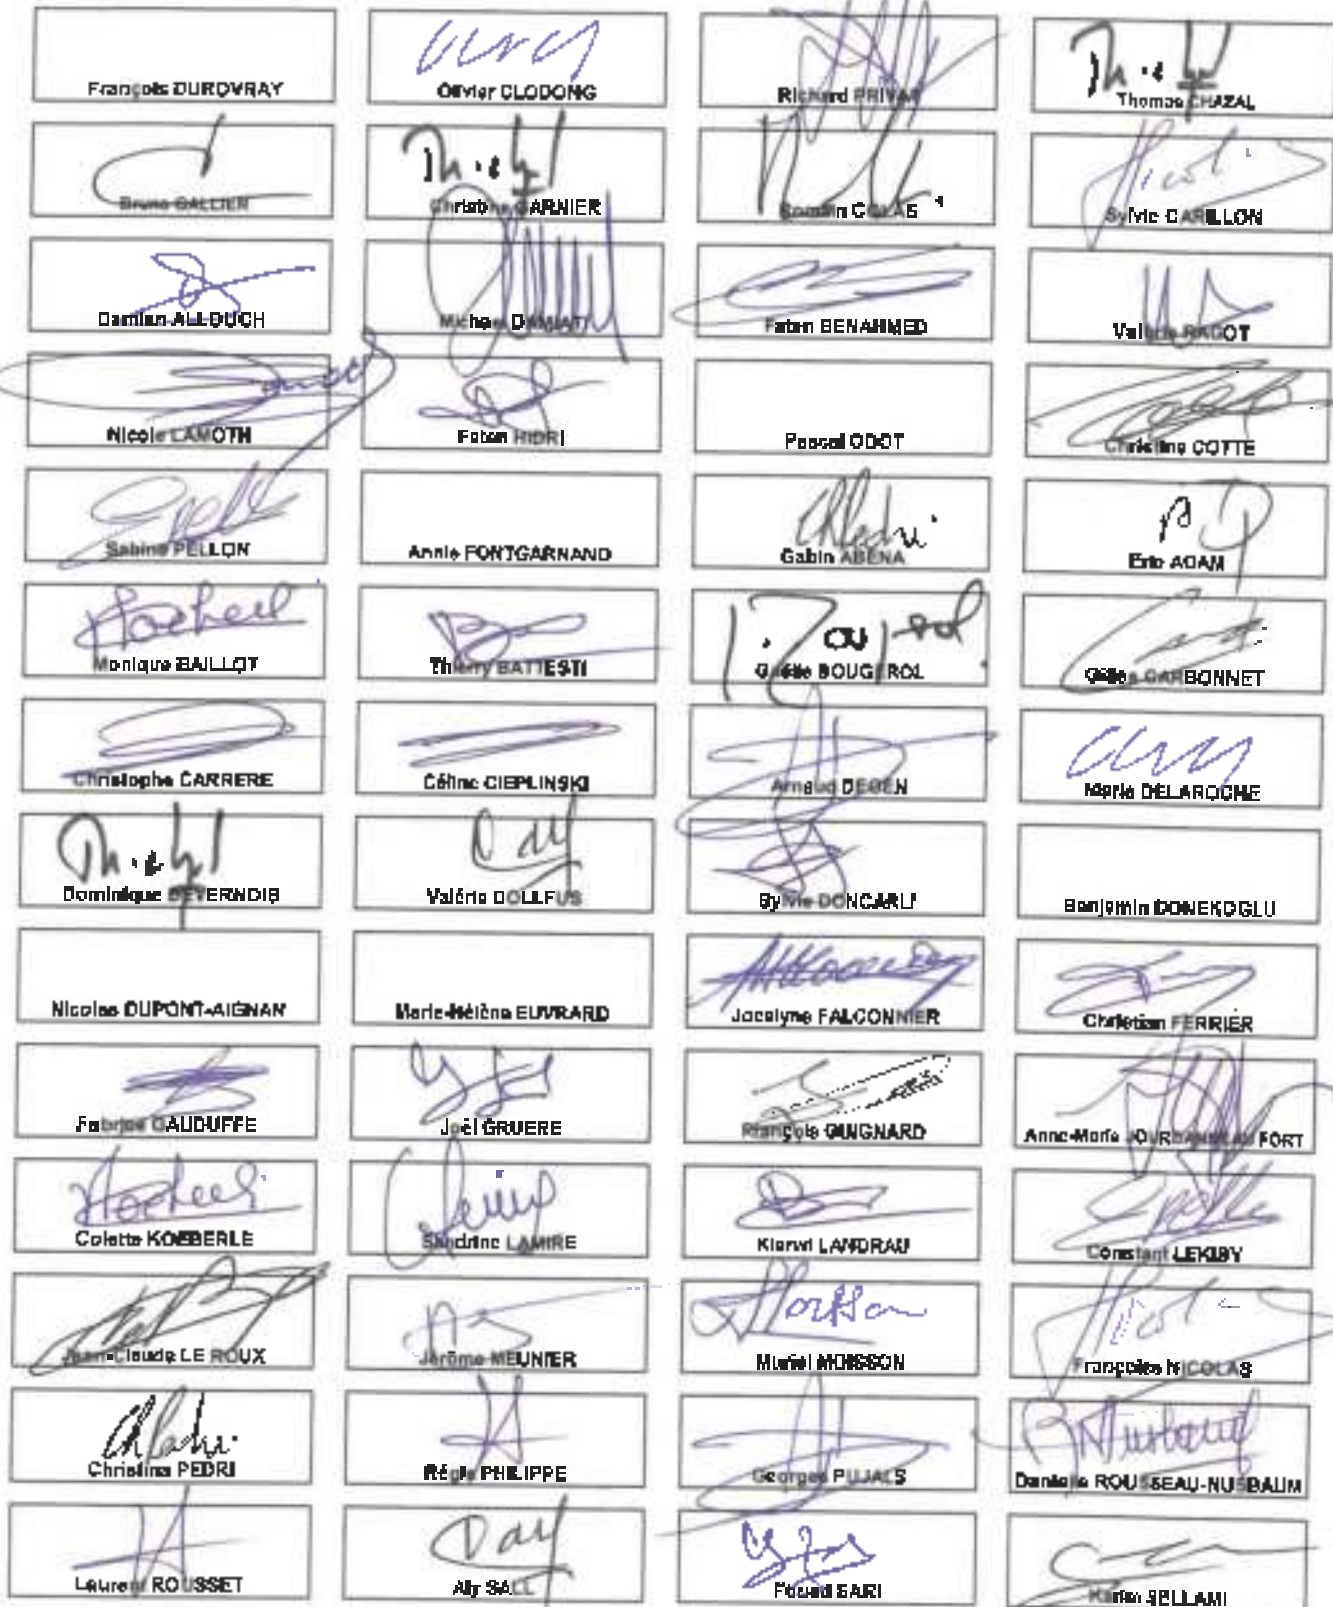 François DUROVRAY
Olivier CLODONG
Richard PRIVAT
Thomas CHAZAL
Bruno GALLIER
Christine GARNIER
Romain COLAS
Sylvie CARILLON
Damien ALLOUCH
Michaël DAMIATI
Faten BENAHMED
Valérie RAGOT
Nicole LAMOTH
Faten HIDRI
Pascal ODOT
Christine COTTE
Sabine PELLON
Annie FONTGARNAND
Gabin ABENA
Eric ADAM
Monique BAILLOT
Thierry BATTESTI
Gaëlle BOUGEROL
Gilles CARBONNET
Christophe CARRERE
Céline CIEPLINSKI
Arnaud DEGEN
Marie DELAROCHE
Dominique DEVERNOIS
Valérie DOLLFUS
Sylvie DONCARLI
Benjamin DONEKOGLU
Nicolas DUPONT-AIGNAN
Marie-Hélène EUVRARD
Jocelyne FALCONNIER
Christian FERRIER
Fabrice GAUDUFFE
Joël GRUERE
François GUIGNARD
Anne-Marie FORT
Colette KOEBERLE
Sandrine LAMIRE
LANDRAU
Constant LEKIBY
Jean-Claude LE ROUX
Jérôme MEUNIER
Muriel MOISSON
Françoise NICOLAS
Christina PEDRI
Régis PHILIPPE
Georges PUJALS
Danielle ROUSSEAU-NUSBAUM
Laurent ROUSSET
Aly SALL
Fouad SARI
Karim SELLAMI